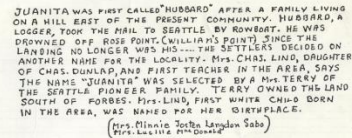 JUANITA WAS FIRST CALLED "HUBBARD" AFTER A FAMILY LIVING
ON A HILL EAST OF THE PRESENT COMMUNITY. HUBBARD, A
LOGGER, TOOK THE MAIL TO SEATTLE BY ROWBOAT. HE WAS
DROWNED OFF ROSE POINT. (WILLIAM'S POINT) SINCE THE
LANDING NO LONGER WAS HIS.... THE SETTLERS DECIDED ON
ANOTHER NAME FOR THE LOCALITY. MRS. CHAS. LIND, DAUGHTER
OF CHAS. DUNLAP, AND FIRST TEACHER IN THE AREA, SAYS
THE NAME "JUANITA" WAS SELECTED BY A MRS. TERRY OF
THE SEATTLE PIONEER FAMILY. TERRY OWNED THE LAND
SOUTH OF FORBES. MRS. LIND, FIRST WHITE CHILD BORN
IN THE AREA, WAS NAMED FOR HER BIRTHPLACE.
(Mrs. Minnie Josten Langdon Sabo)
(Mrs. Lucille MacDonald)